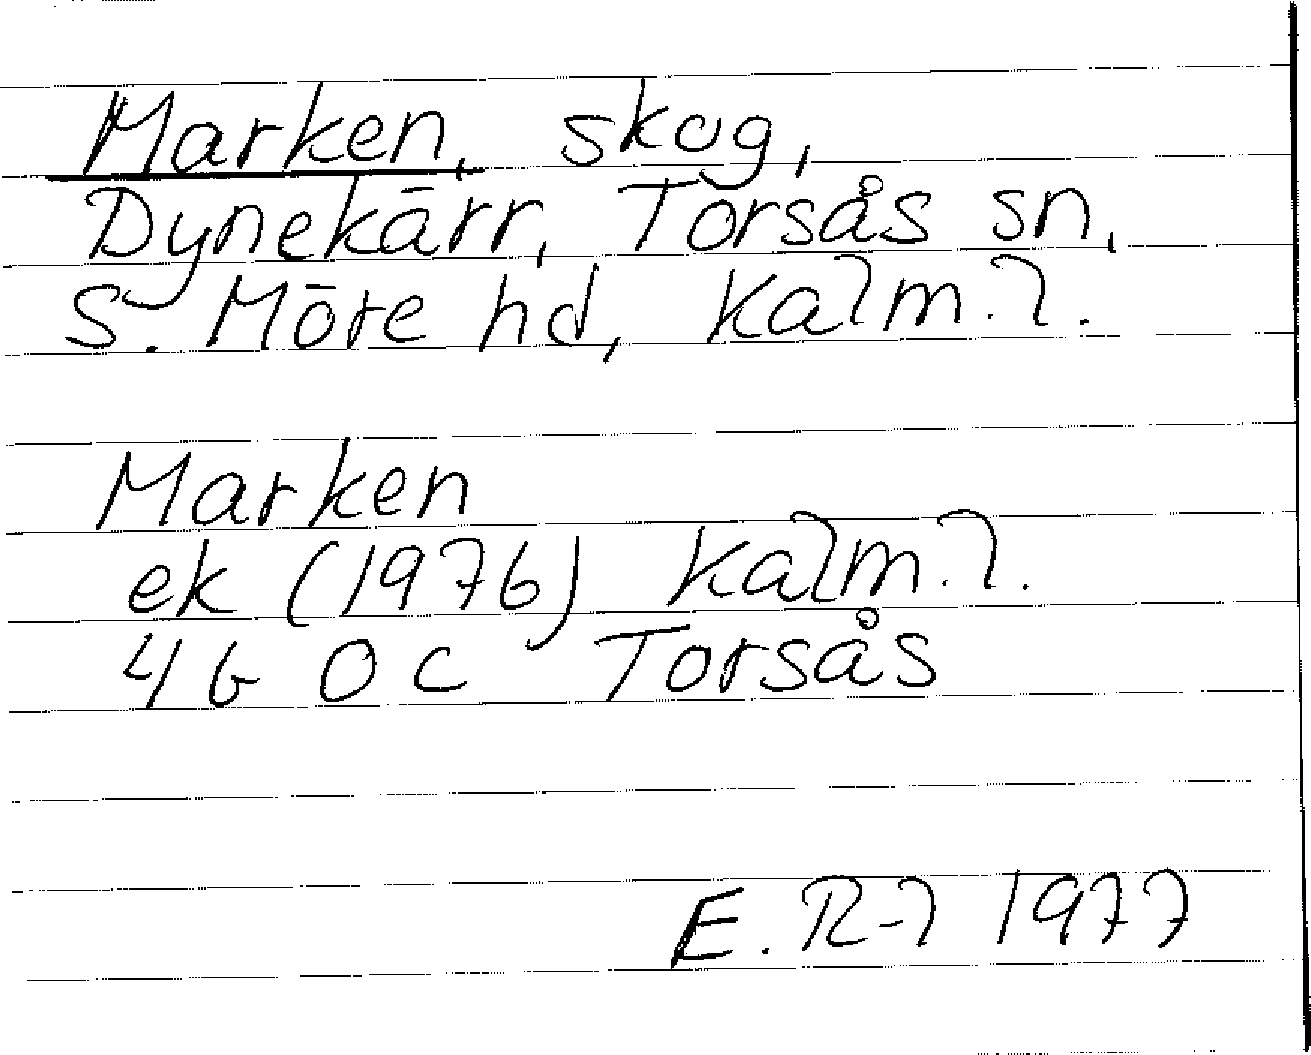 Marken, skog,
Dynekärr, Torsås sn,
S. Möre hd, Kalm. l.
Marken
ek (1976) Kalm. l.
4G 0c Torsås
E. R-l 1977